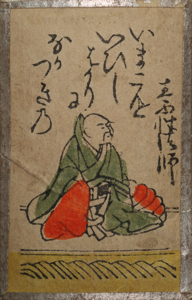 素性法師
いまこむと
いひし
はかりに
なか
つき乃